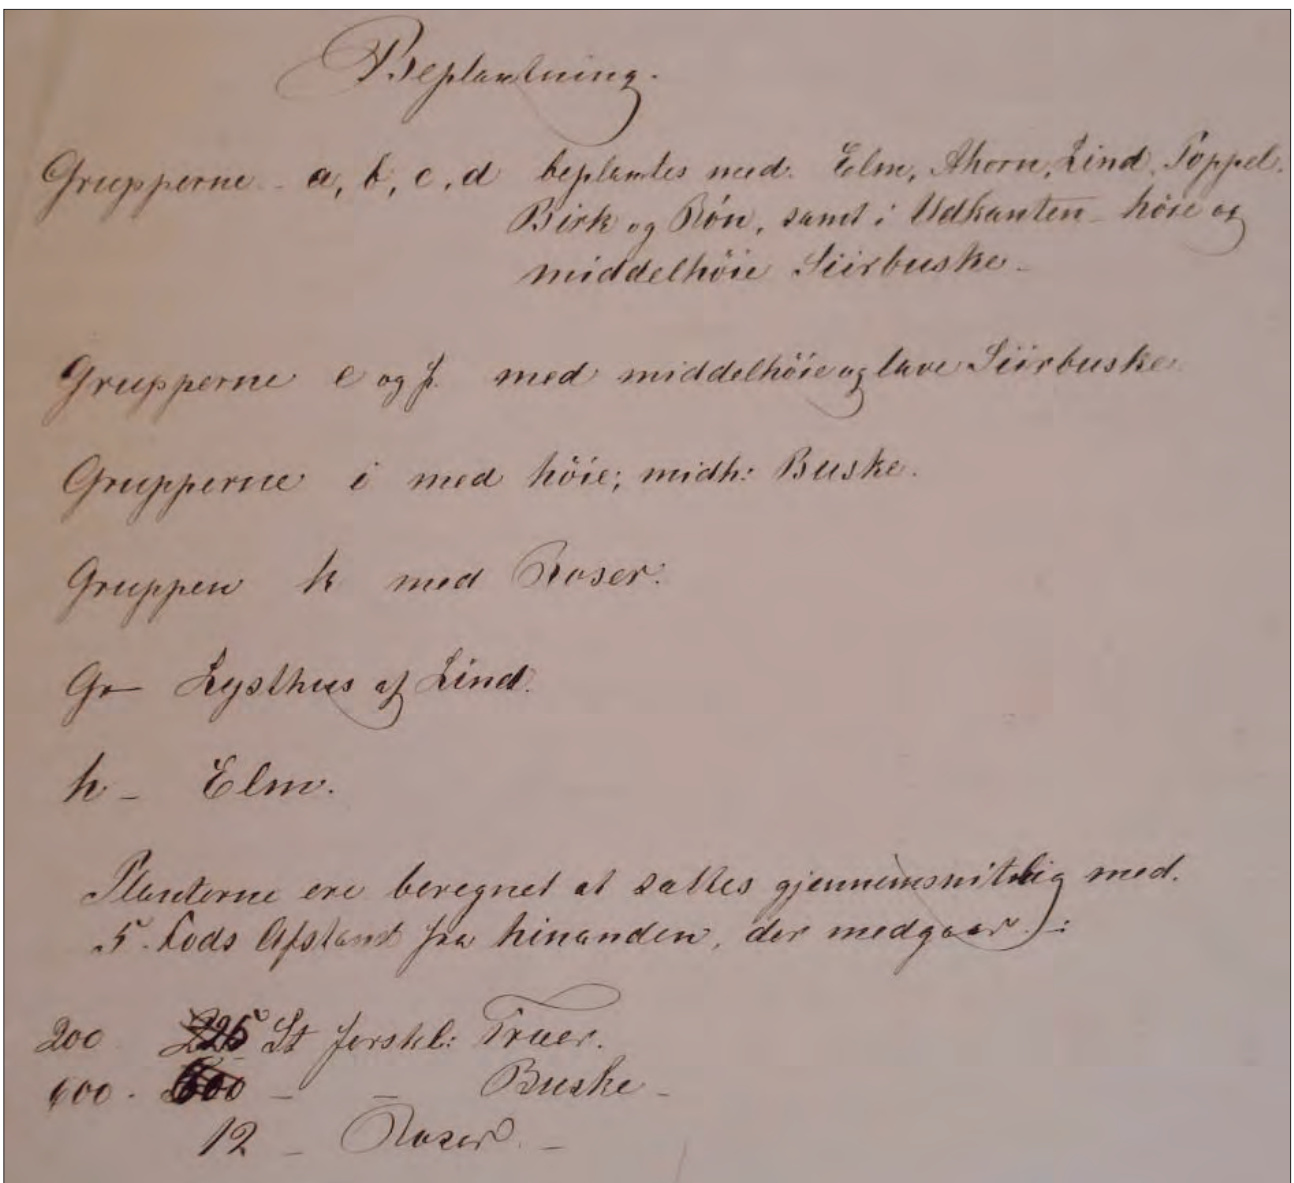 Beplantning.
Grupperne a, b, c, d beplantes med. Elm, Ahorn, Lind, Poppel.
Birk og Rön, samt i Udkanten höie og
middelhöie Siirbuske
Grupperne e og f. med middelhöie og lave Siirbuske
Grupperne i med höie; midh: Buske.
Gruppen k med Roser.
Lysthus af Lind.
h – Elm.
Planterne ere beregnet at sættes gjennemsnitlig med.
5. Fods Afstand fra hinanden, der medgaar :
200 225 St forskl: Træer.
600 – – Buske –
12 – Roser. –